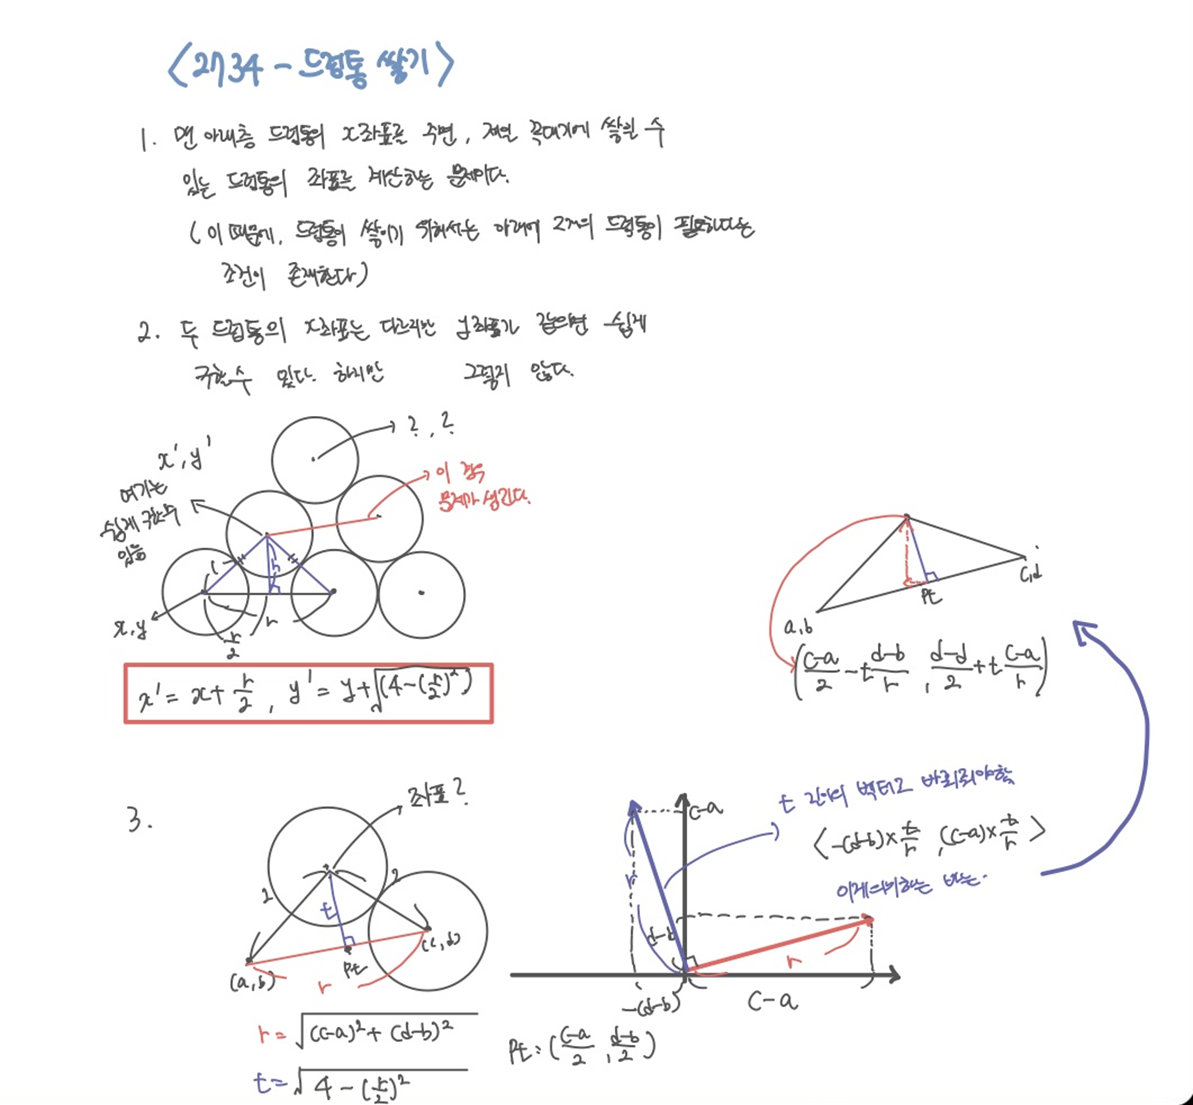 <2734 - 드럼통 쌓기>
1. 맨 아래층 드럼통의 x좌표를 주면, 제일 꼭대기에 쌓일 수
있는 드럼통의 좌표를 계산하는 문제이다.
(이 때문에, 드럼통이 쌓이기 위해서는 아래에 2개의 드럼통이 필요하다는
조건이 존재한다)
2. 두 드럼통의 x좌표는 다르지만 y좌표가 같으면 쉽게
구할수 있다. 하지만 그렇지 않다.
?, ?
x', y'
여기는
쉽게 구할수
있음
이 쪽
문제가 생긴다.
h
r
x, y
r/2
x' = x + r/2, y' = y + √(4-(r/2)²)
a, b
c, d
Pt
((c-a)/2 - t(d-b)/r, (d-d)/2 + t(c-a)/r)
3.
좌표?
2
2
t
(a, b)
Pt
(c, d)
r
r = √((c-a)² + (d-b)²)
t = √(4-(r/2)²)
c-a
r
d-b
r
-(d-b)
c-a
Pt : ((c-a)/2, (d-b)/2)
t 길이의 벡터로 바뀌줘야함
<-(d-b)×t/r, (c-a)×t/r>
이게 의미하는 바는.